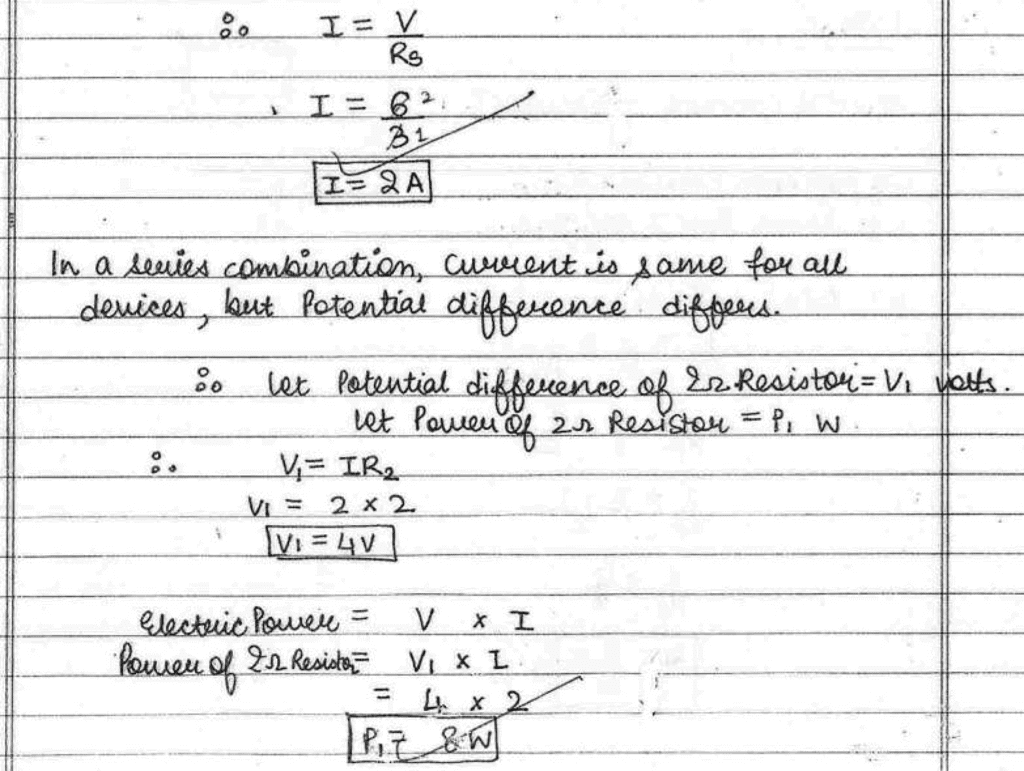 ∴ I = V
Rs
I = 6 2
3 1
I = 2A
In a series combination, current is same for all
devices, but Potential difference differs.
∴ let Potential difference of 2Ω Resistor = V₁ volts.
let Power of 2Ω Resistor = P₁ W
∴ V₁ = IR₂
V₁ = 2 × 2
V₁ = 4V
Electric Power = V × I
Power of 2Ω Resistor = V₁ × I
= 4 × 2
P₁ = 8W